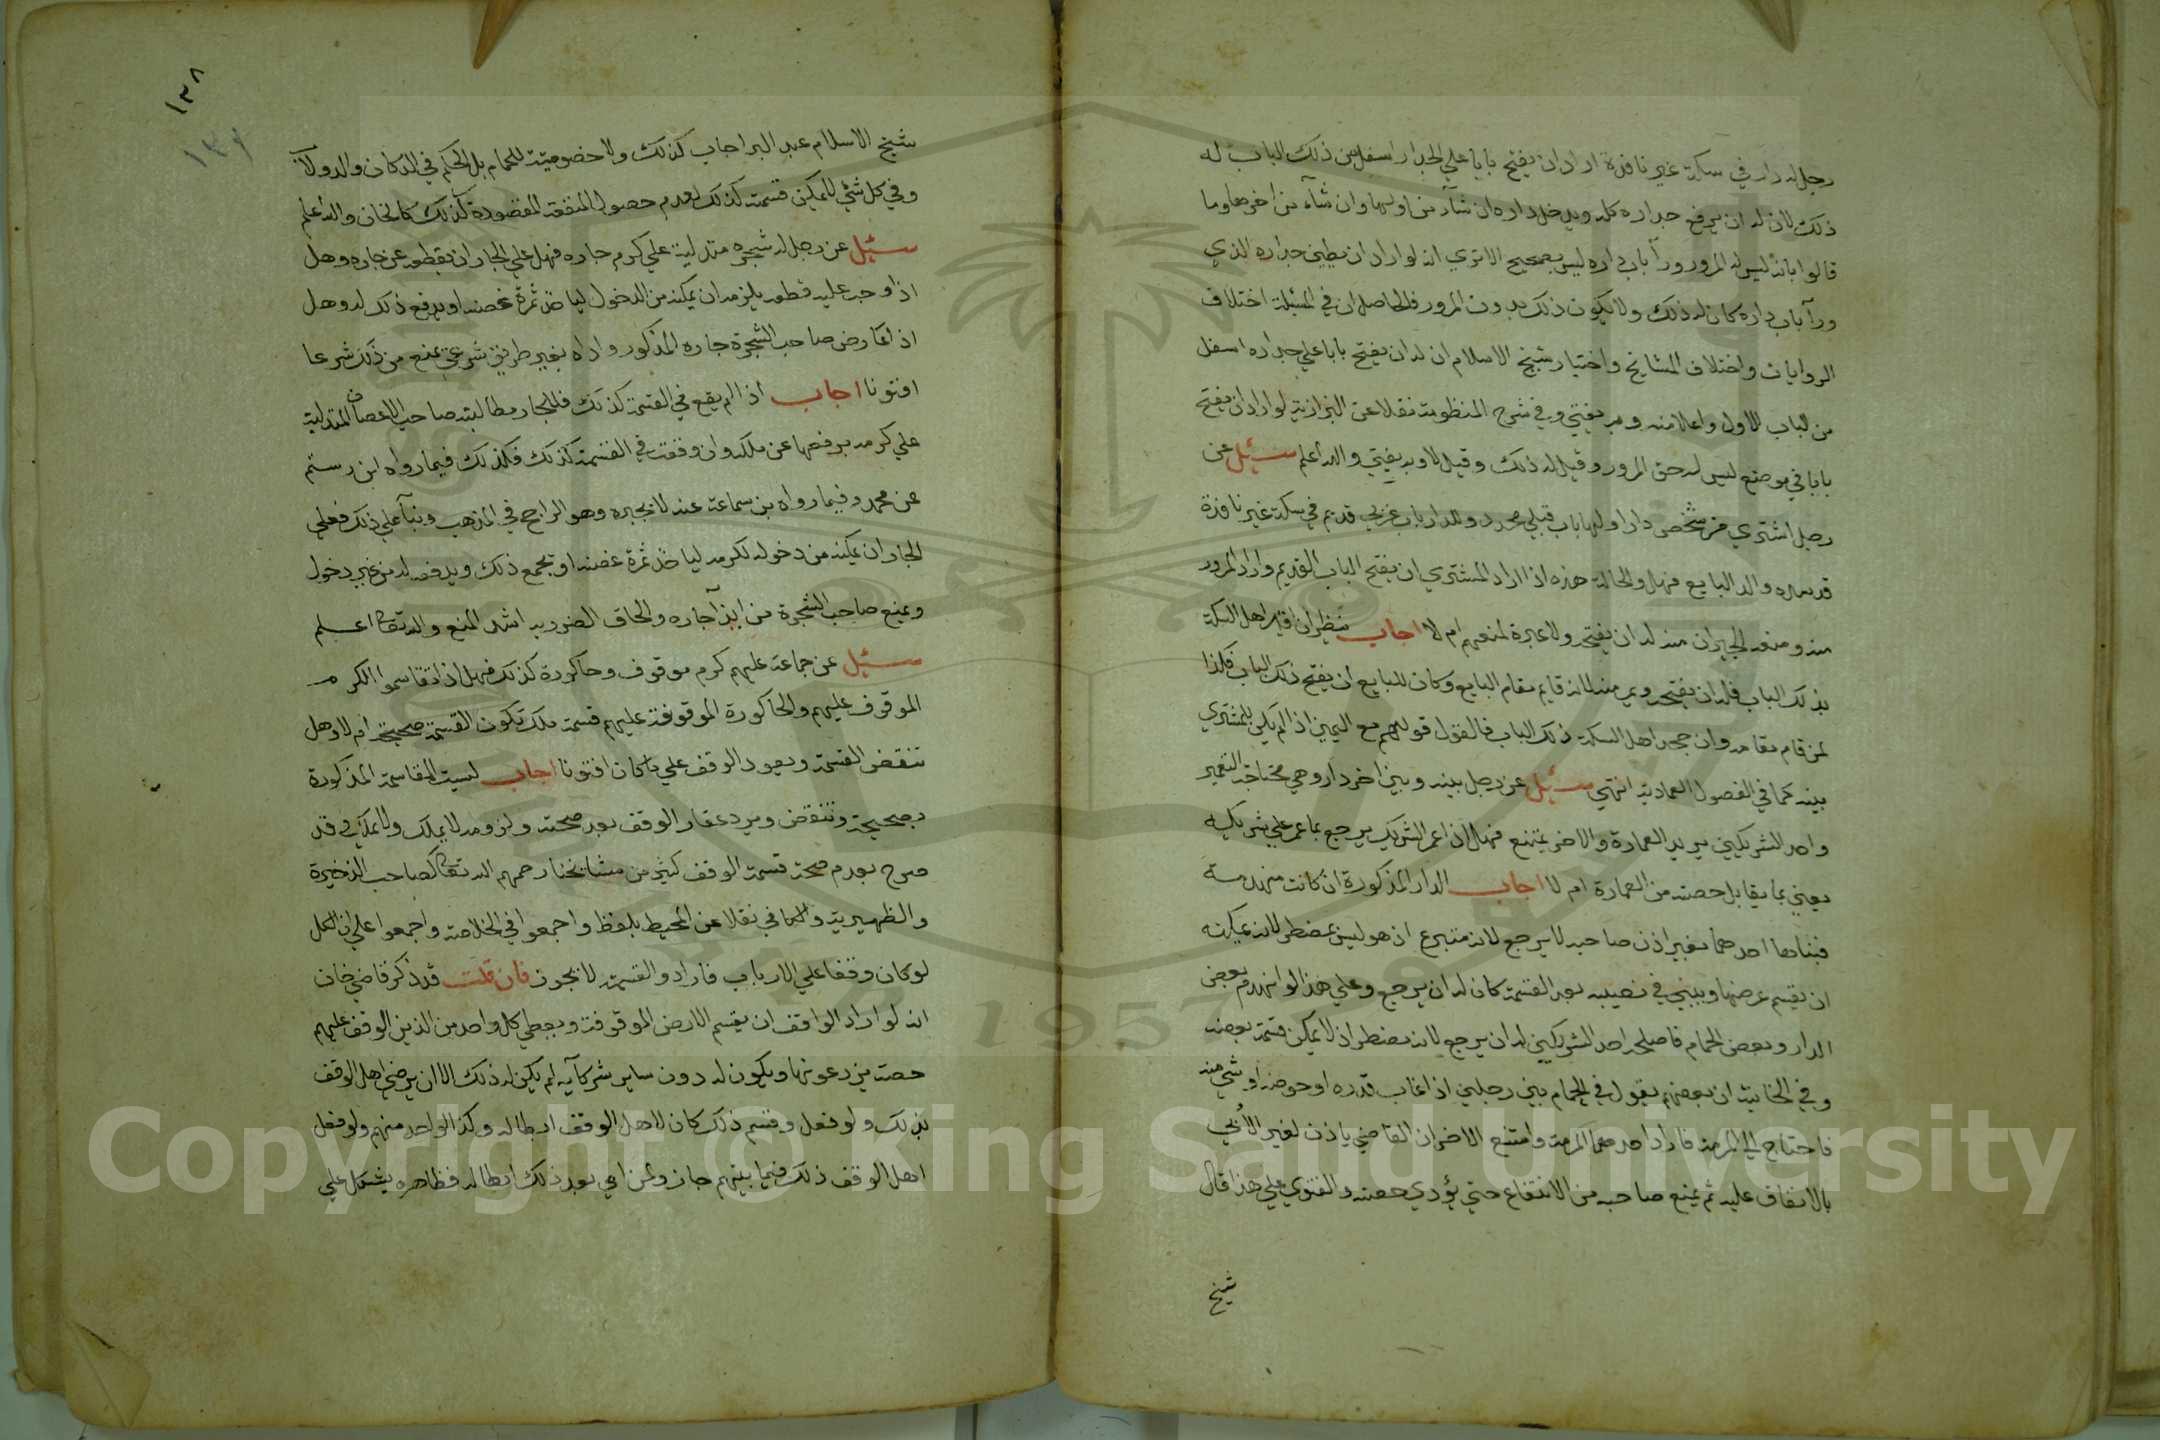 رجل له دار في سكة غير نافذة اراد ان يفتح بابا علي الجدار اسفل من ذلك الباب له
ذلك لان له ان يرفع جداره كله ويدخل داره ان شآء من اولها وان شآء من اخرها وما
قالوا بانه ليس له المرور ورآ باب داره ليس بصحيح الا تري انه لو اراد ان يطين جداره الذي
ورآ باب داره كان له ذلك ولا يكون ذلك بدون المرور فالحاصل ان في المسئلة اختلاف
الروايات واختلاف المشايخ واختيار شيخ الاسلام ان له ان يفتح بابا علي جداره اسفل
من الباب الاول واعلا منه وبه يفتي وفي شرح المنظومة نقلا عن البزازية لو اراد ان يفتح
بابا في موضع ليس له حق المرور وقيل له ذلك وقيل لا وبه يفتي والله اعلم سئل عن
رجل اشتري من شخص دارا ولها باب قبلي محدد وللدار باب غربي قديم في سكة غير نافذة
والد البايع فهل والحالة هذه اذا اراد المشتري ان يفتح الباب القديم واراد المرور
منه ومنعه الجيران منه له ان يفتحه ولا عبرة لمنعهم ام لا اجاب ينظر ان اقر اهل السكة
بذلك الباب فله ان يفتحه ويمر منه لانه قايم مقام البايع وكان للبايع ان يفتح ذلك الباب فكذا
لمن قام مقامه وان جحد اهل السكة ذلك الباب فالقول قولهم مع اليمين اذا لم يكن للمشتري
بينة كما في الفصول العمادية انتهي سئل عن رجل بينه وبين اخر دار وهي محتاجة التعمير
واحد الشريكين يريد العمارة والاخر يمتنع فهل اذا عمر الشريك يرجع بما عمر علي شريكه
يعني بما يقابل حصته من العمارة ام لا اجاب الدار المذكورة ان كانت منهدمة
فبناها احدهما بغير اذن صاحبه لا يرجع لانه متبرع اذ هو ليس بمضطر لانه يمكنه
ان يقسم عرصتها ويبني في نصيبه بعد القسمة كان له ان يرجع وعلي هذا لو انهدم بعض
الدار وبعض الحمام فاصلحه احد الشريكين له ان يرجع لانه مضطر اذ لا يمكن قسمة بعضه
وفي الخانية ان بعضهم يقول في الحمام بين رجلين اذا غاب قدره او حوضه او شي منه
فاحتاج الي المرمة فاراد احدهما المرمة وامتنع الاخر ان القاضي ياذن لغير الآبي
بالانفاق عليه ثم يمنع صاحبه من الانتفاع حتي يؤدي حصته والفتوي علي هذا قال
شيخ
١٣٨
١٣٩
شيخ الاسلام عبد البر اجاب كذلك ولا خصوصية للحمام بل الحكم في الدكان والدولاب
وفي كل شئ لا يمكن قسمته كذلك لعدم حصول المنفعة المقصودة كذلك كالخان والله اعلم
سئل عن رجل له شجرة متدلية علي كرم جاره فهل علي الجار ان يقطعه عن جاره وهل
اذا وجب عليه قطعه يلزمه ان يمكنه من الدخول لياخذ ثمرة غصنه او يدفع ذلك له وهل
اذا عارض صاحب الشجرة جاره المذكور واذاه بغير طريق شرعي يمنع من ذلك شرعا
افتونا اجاب اذا لم يقع في القسمة كذلك فللجار مطالبة صاحب الاغصان المتدلية
علي كرمه برفعها عن ملكه وان وقعت في القسمة كذلك فكذلك فيما رواه ابن رستم
عن محمد وفيما رواه بن سماعة عنه لا يجبره وهو الراجح في المذهب وبنآ علي ذلك فعلي
الجار ان يمكنه من دخوله لكرمه لياخذ ثمرة غصنه او يجمع ذلك ويدفعه له من غير دخول
ويمنع صاحب الشجرة من ايذآ جاره والحاق الضرر به اشد المنع والله تعالي اعلم
سئل عن جماعة عليهم كرم موقوف وحاكورة كذلك فهل اذا تقاسموا الكرم
الموقوف عليهم والحاكورة الموقوفة عليهم قسمة ملك تكون القسمة صحيحة ام لا وهل
تنقض القسمة ويعود الوقف علي ما كان افتونا اجاب ليست المقاسمة المذكورة
بصحيحة وتنقض ويرد عقار الوقف بعد صحته ولزومه لا يملك ولا يملك قد
صرح بعدم صحة قسمة الوقف كثير من مشايخنا رحمهم الله تعالي كصاحب الذخيرة
والظهيرية والكافي نقلا عن المحيط بلفظ واجمعوا في الخلاصة واجمعوا علي ان الكل
لو كان وقفا علي الارباب فارادوا القسمة لا يجوز فان قلت قد ذكر قاضي خان
انه لو اراد الواقف ان يقسم الارض الموقوفة ويعطي كل واحد من الذين الوقف عليهم
حصته يزرعونها ويكون له دون ساير شركآيه لم يكن له ذلك الا ان يرضي اهل الوقف
بذلك ولو فعل وقسم ذلك كان لاهل الوقف ابطاله وكذا لواحد منهم ولو فعل
اهل الوقف ذلك فيما بينهم جاز ولمن ابي بعد ذلك ابطاله فظاهره يشكل علي
Copyright © King Saud University
1957